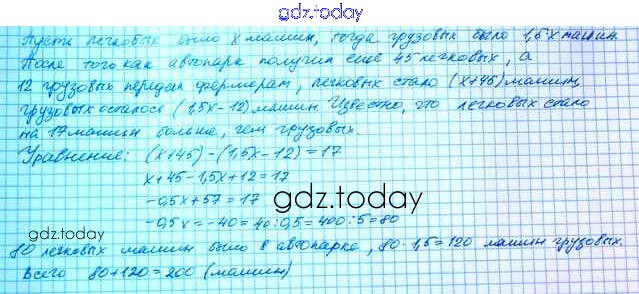 gdz.today
Пусть легковых было х машин, тогда грузовых было 1,5х машин.
После того как автопарк получил ещё 45 легковых, а
12 грузовых передал фермерам, легковых стало (х+45) машин,
грузовых осталось (1,5х-12) машин. Известно, что легковых стало
на 17 машин больше, чем грузовых.
Уравнение: (х+45)-(1,5х-12)=17
х+45-1,5х+12=17
-0,5х+57=17
gdz.today
-0,5х=-40=40:0,5=400:5=80
gdz.today
80 легковых машин было в автопарке, 80·1,5=120 машин грузовых.
Всего 80+120=200 (машин)